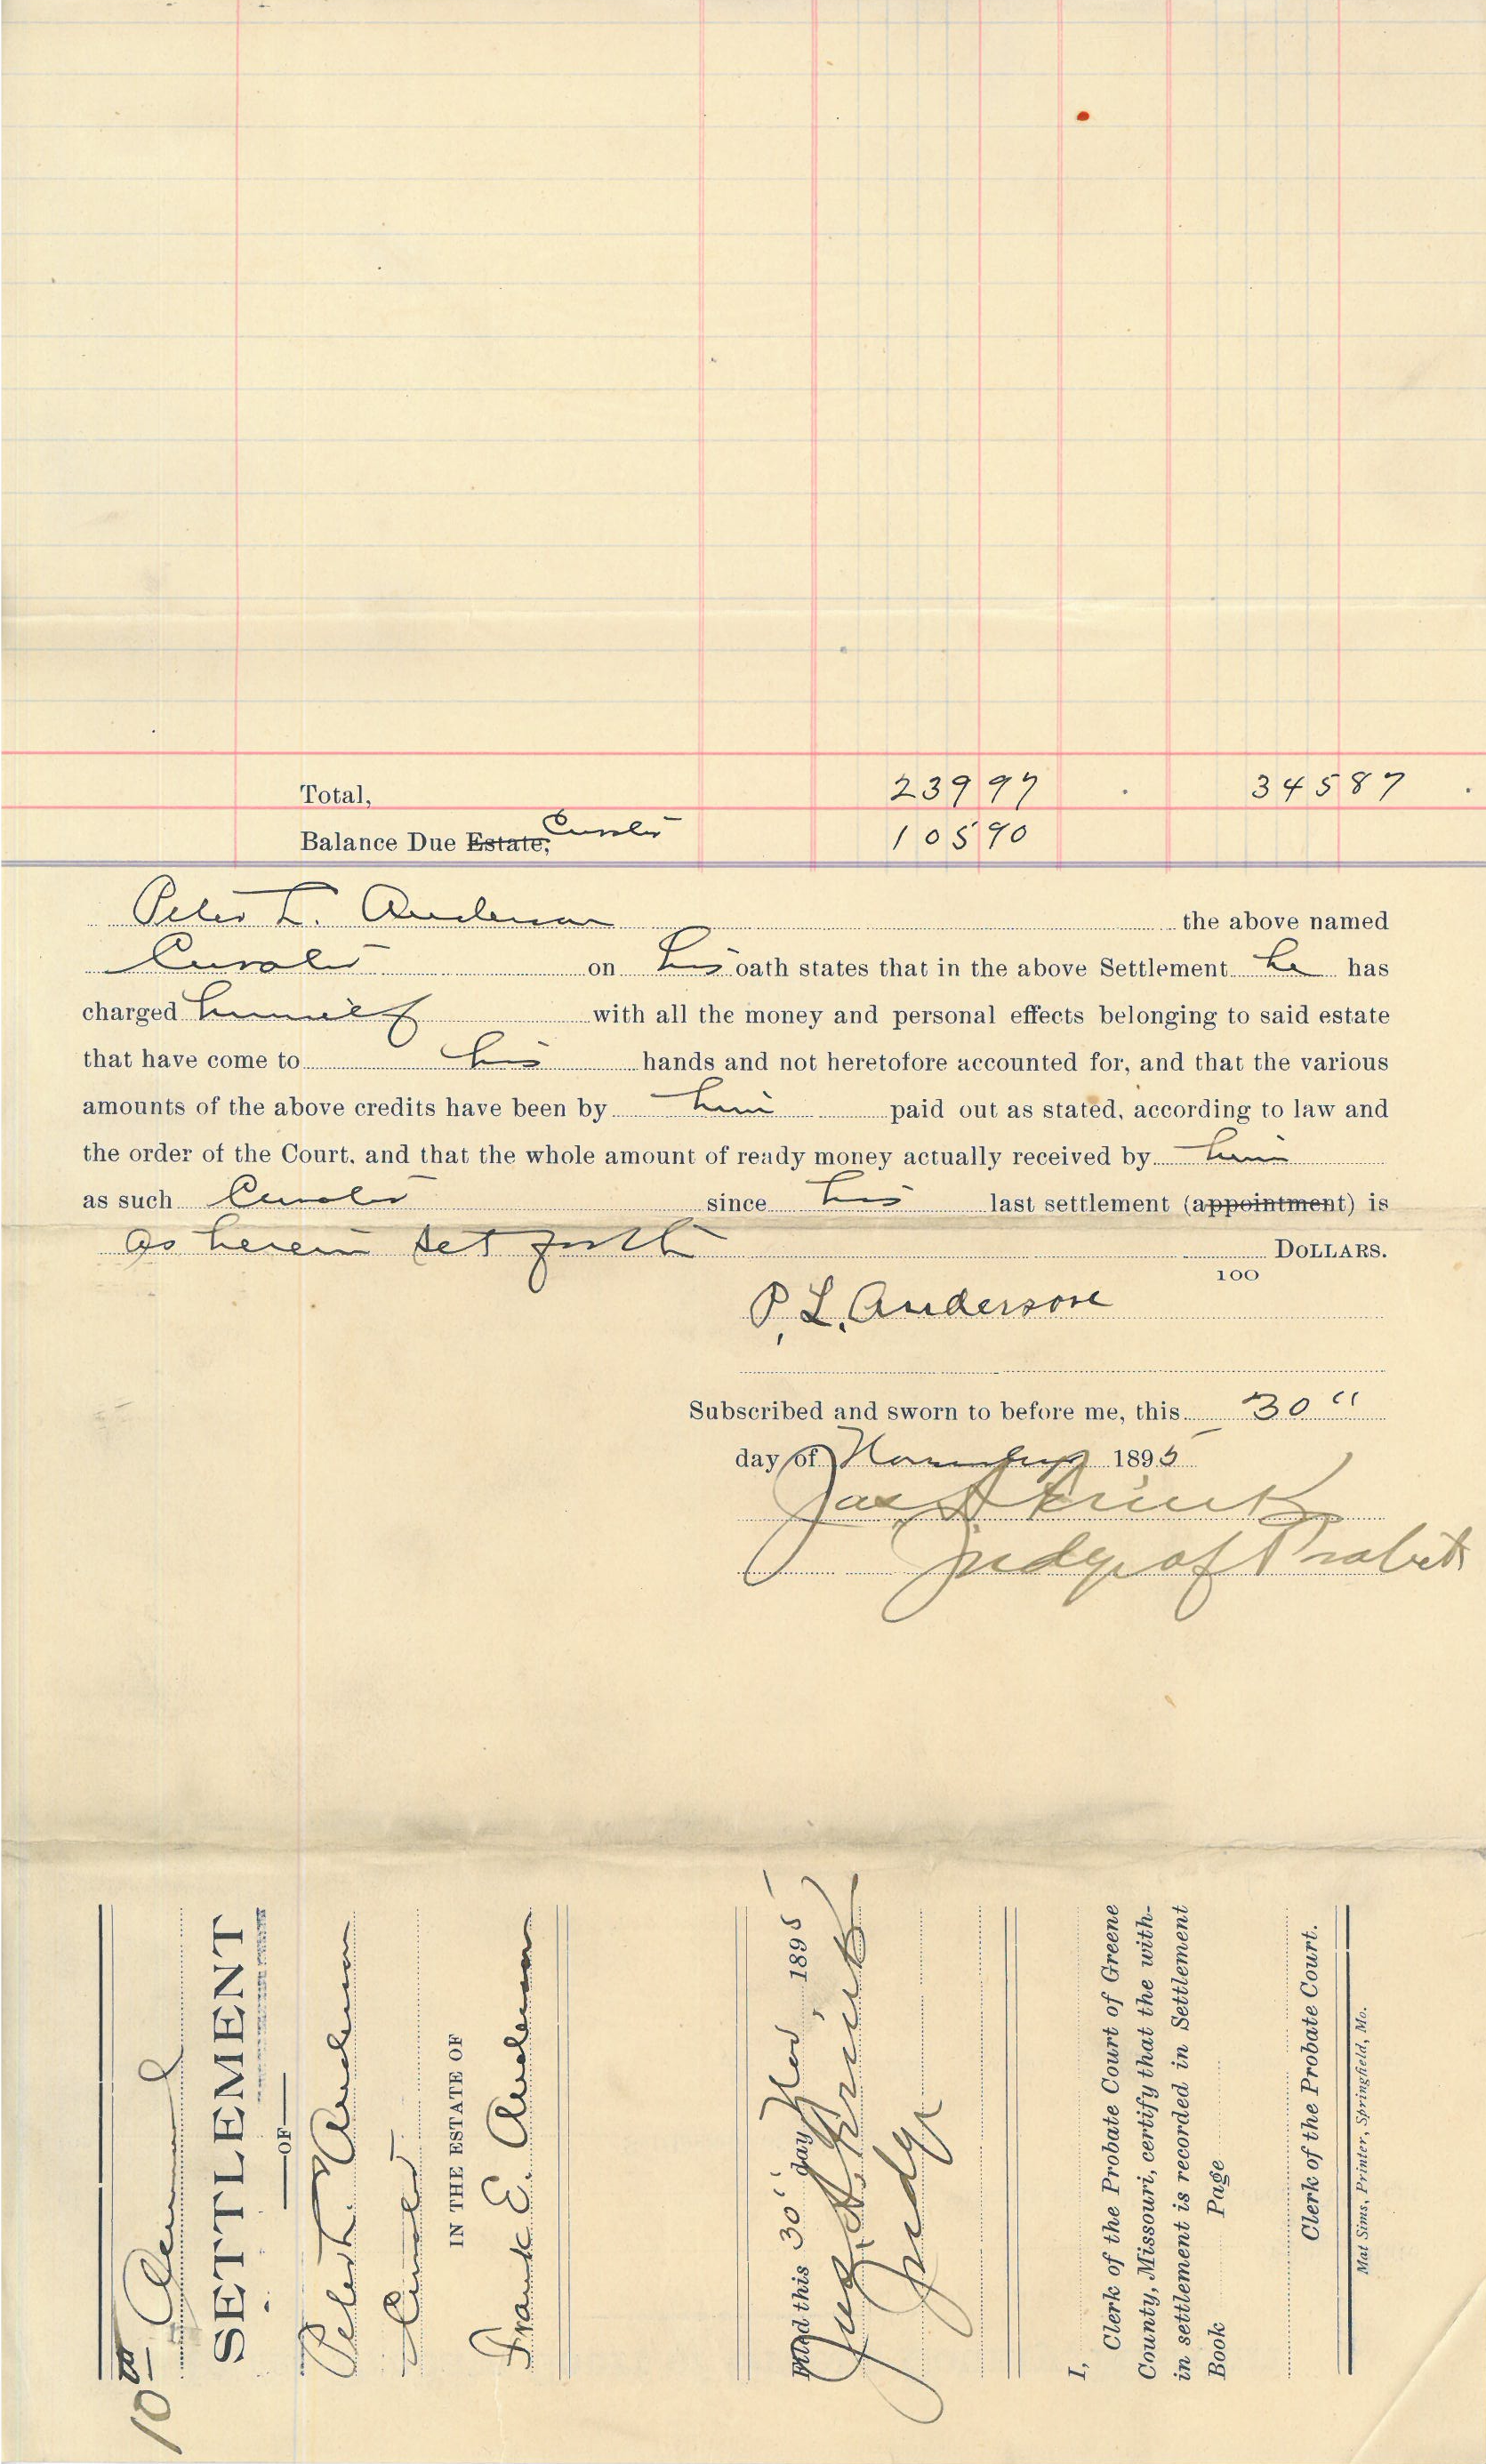 Total, 239 97 345 87
Balance Due Estate, Curator
105 90
Peter L. Anderson the above named
Curator on his oath states that in the above Settlement he has
charged himself with all the money and personal effects belonging to said estate
that have come to his hands and not heretofore accounted for, and that the various
amounts of the above credits have been by him paid out as stated, according to law and
the order of the Court, and that the whole amount of ready money actually received by him
as such Curator since his last settlement (appointment) is
as herein set forth DOLLARS.
100
P. L. Anderson
Subscribed and sworn to before me, this 30"
day of November 1895
Judge of Probate
10th Annual
SETTLEMENT
OF
Peter L. Anderson
Curator
IN THE ESTATE OF
Frank E. Anderson
Filed this 30" day Nov, 1895
Judge
I,
Clerk of the Probate Court of Greene
County, Missouri, certify that the with-
in settlement is recorded in Settlement
Book Page
Clerk of the Probate Court.
Mat Sims, Printer, Springfield, Mo.